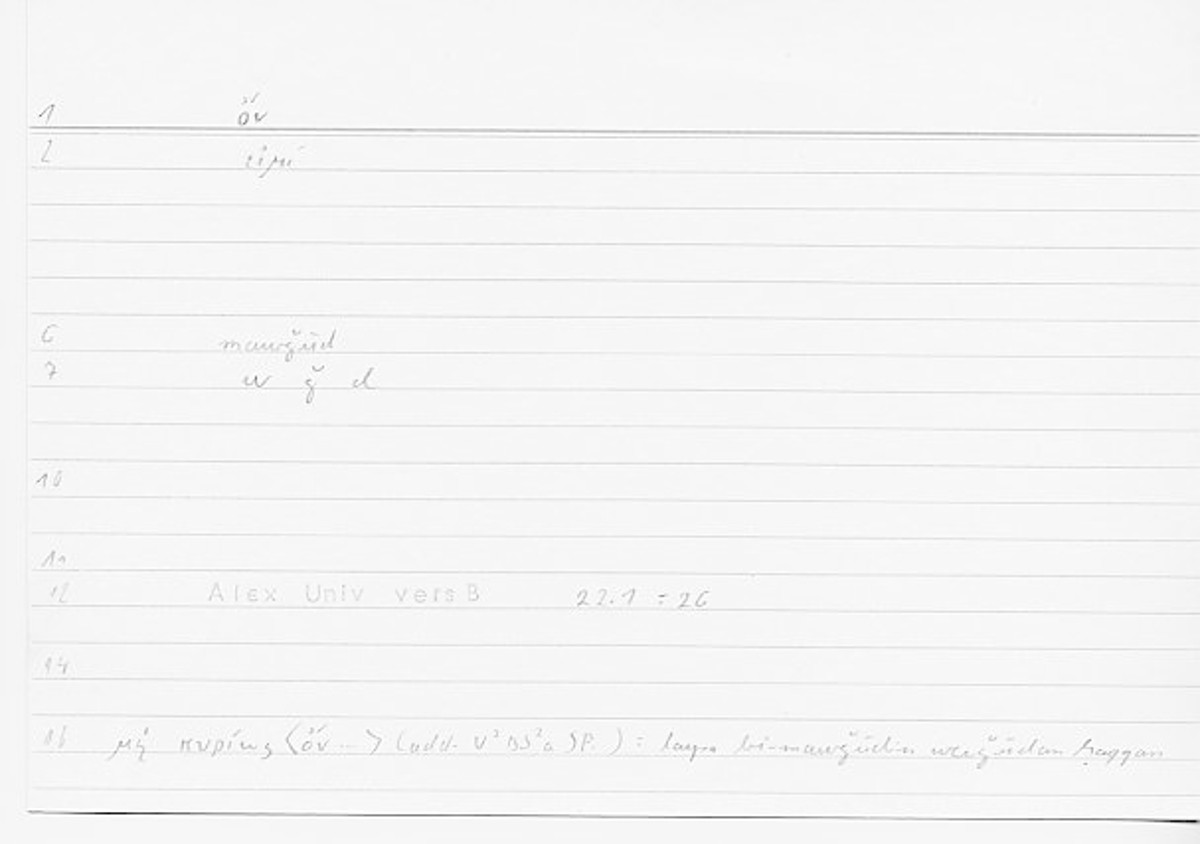 1 ὄν
2 εἰμί
6 mawǧūd
7 w ǧ d
10
11
12 Alex Univ vers B 22.1 = 26
14
16 μὴ κυρίως ⟨ὄν ...⟩ (add. ) = laysa bi-mawǧūdin wuǧūdan ḥaqqan